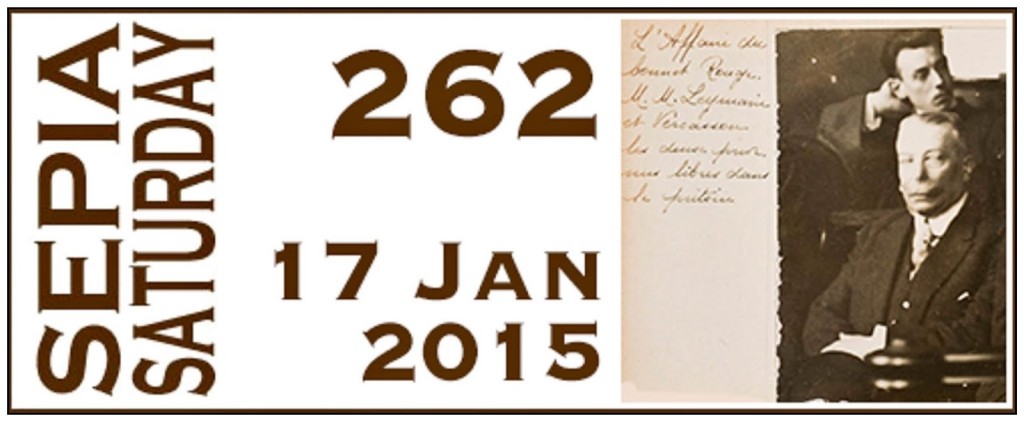 SEPIA
SATURDAY
262
17 JAN
2015
L'Affaire du
bonnet Rouge.
M. M. Leymarie
et Vercasson
les deux prévenus
libres dans
le prétoire